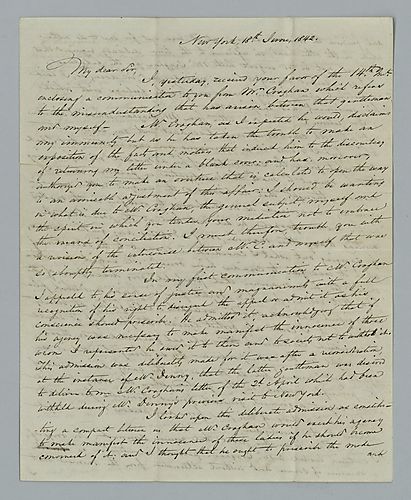 New York, 18th June, 1842.
My dear Sir,
I yesterday received your favor of the 14th Inst.
enclosing a communication to you from Mr. Croghan which refers
to the misunderstanding that has arisen between that gentleman
and myself. Mr. Croghan, as I expected he would, disclaims
any but as he has taken the trouble to make an
exposition of the facts and motives that induced him to the discourtesy
of returning my letter under a blank cover; and has, moreover,
authorised you to make an overture that is calculated to open the way
to an amicable adjustment of this affair; I should be wanting
in what is due to Mr. Croghan, the general subject, myself and
the spirit in which you tender your mediation not to embrace
the means of conciliation. I must therefore trouble you with
a revision of the intercourse between Mr. C. and myself that was
so abruptly terminated.
In my first communication to Mr. Croghan
I appealed to his sense of justice and magnanimity with a full
recognition of his right to disregard the appeal or admit it as his
conscience should prescribe. He admitted it: acknowledging that if
his agency was necessary to make manifest the innocence of those
whom I represented he owed it to them and to society not to withhold it.
This admission was deliberately made for it was after a consideration
at the instance of Mr. Denny, that the latter gentleman was desired
to deliver to me Mr. Croghan's letter of the 2d April which had been
withheld during Mr. Denny's previous visit to New York.
I looked upon this deliberate admission as constitu-
ting a compact between us that Mr. Croghan would exert his agency
to make manifest the innocence of these ladies if he should become
convinced of it; and I thought that he ought to prescribe the mode
and